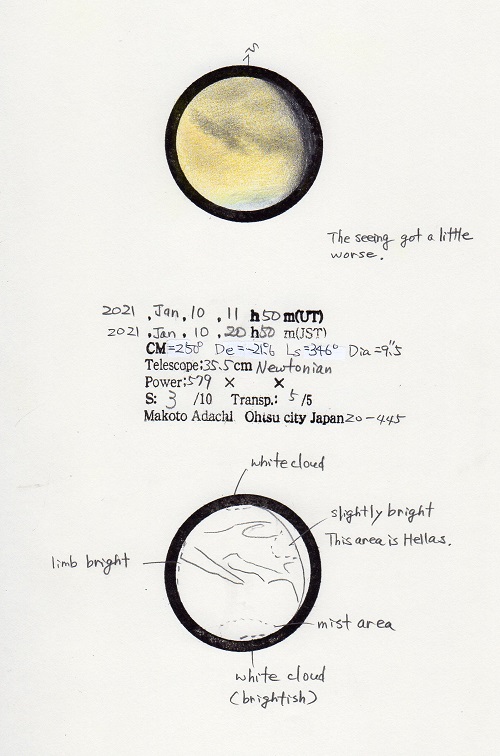 N
The seeing got a little
worse.
2021 . Jan . 10 . 11 h 50 m(UT)
2021 . Jan . 10 . 20 h 50 m(JST)
CM=250° De=-21.6 Ls=346° Dia=9".5
Telescope:35.5cm Newtonian
Power:579 × ×
S: 3 /10 Transp.: 5 /5
Makoto Adachi Ohtsu city Japan 20-445
white cloud
slightly bright
This area is Hellas.
limb bright
mist area
white cloud
(brightish)